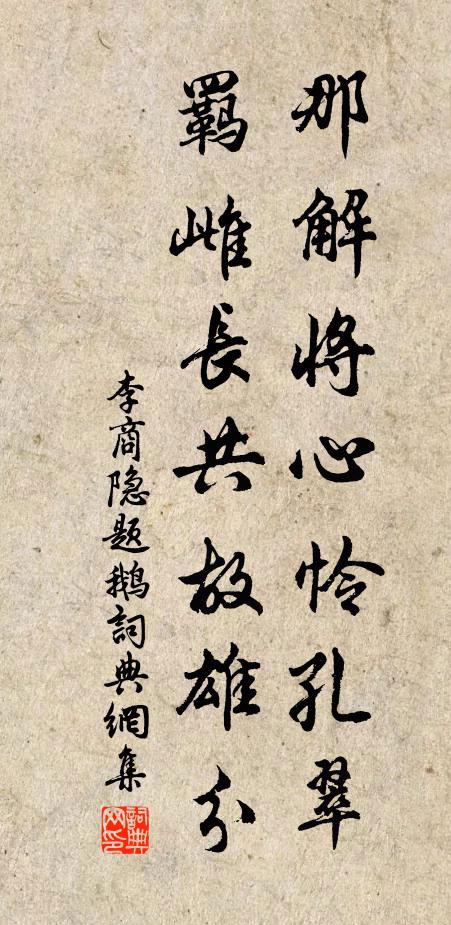 那解将心怜孔翠
羈雌長共故雄分
李商隐题鵝詞典網集
詞典网印